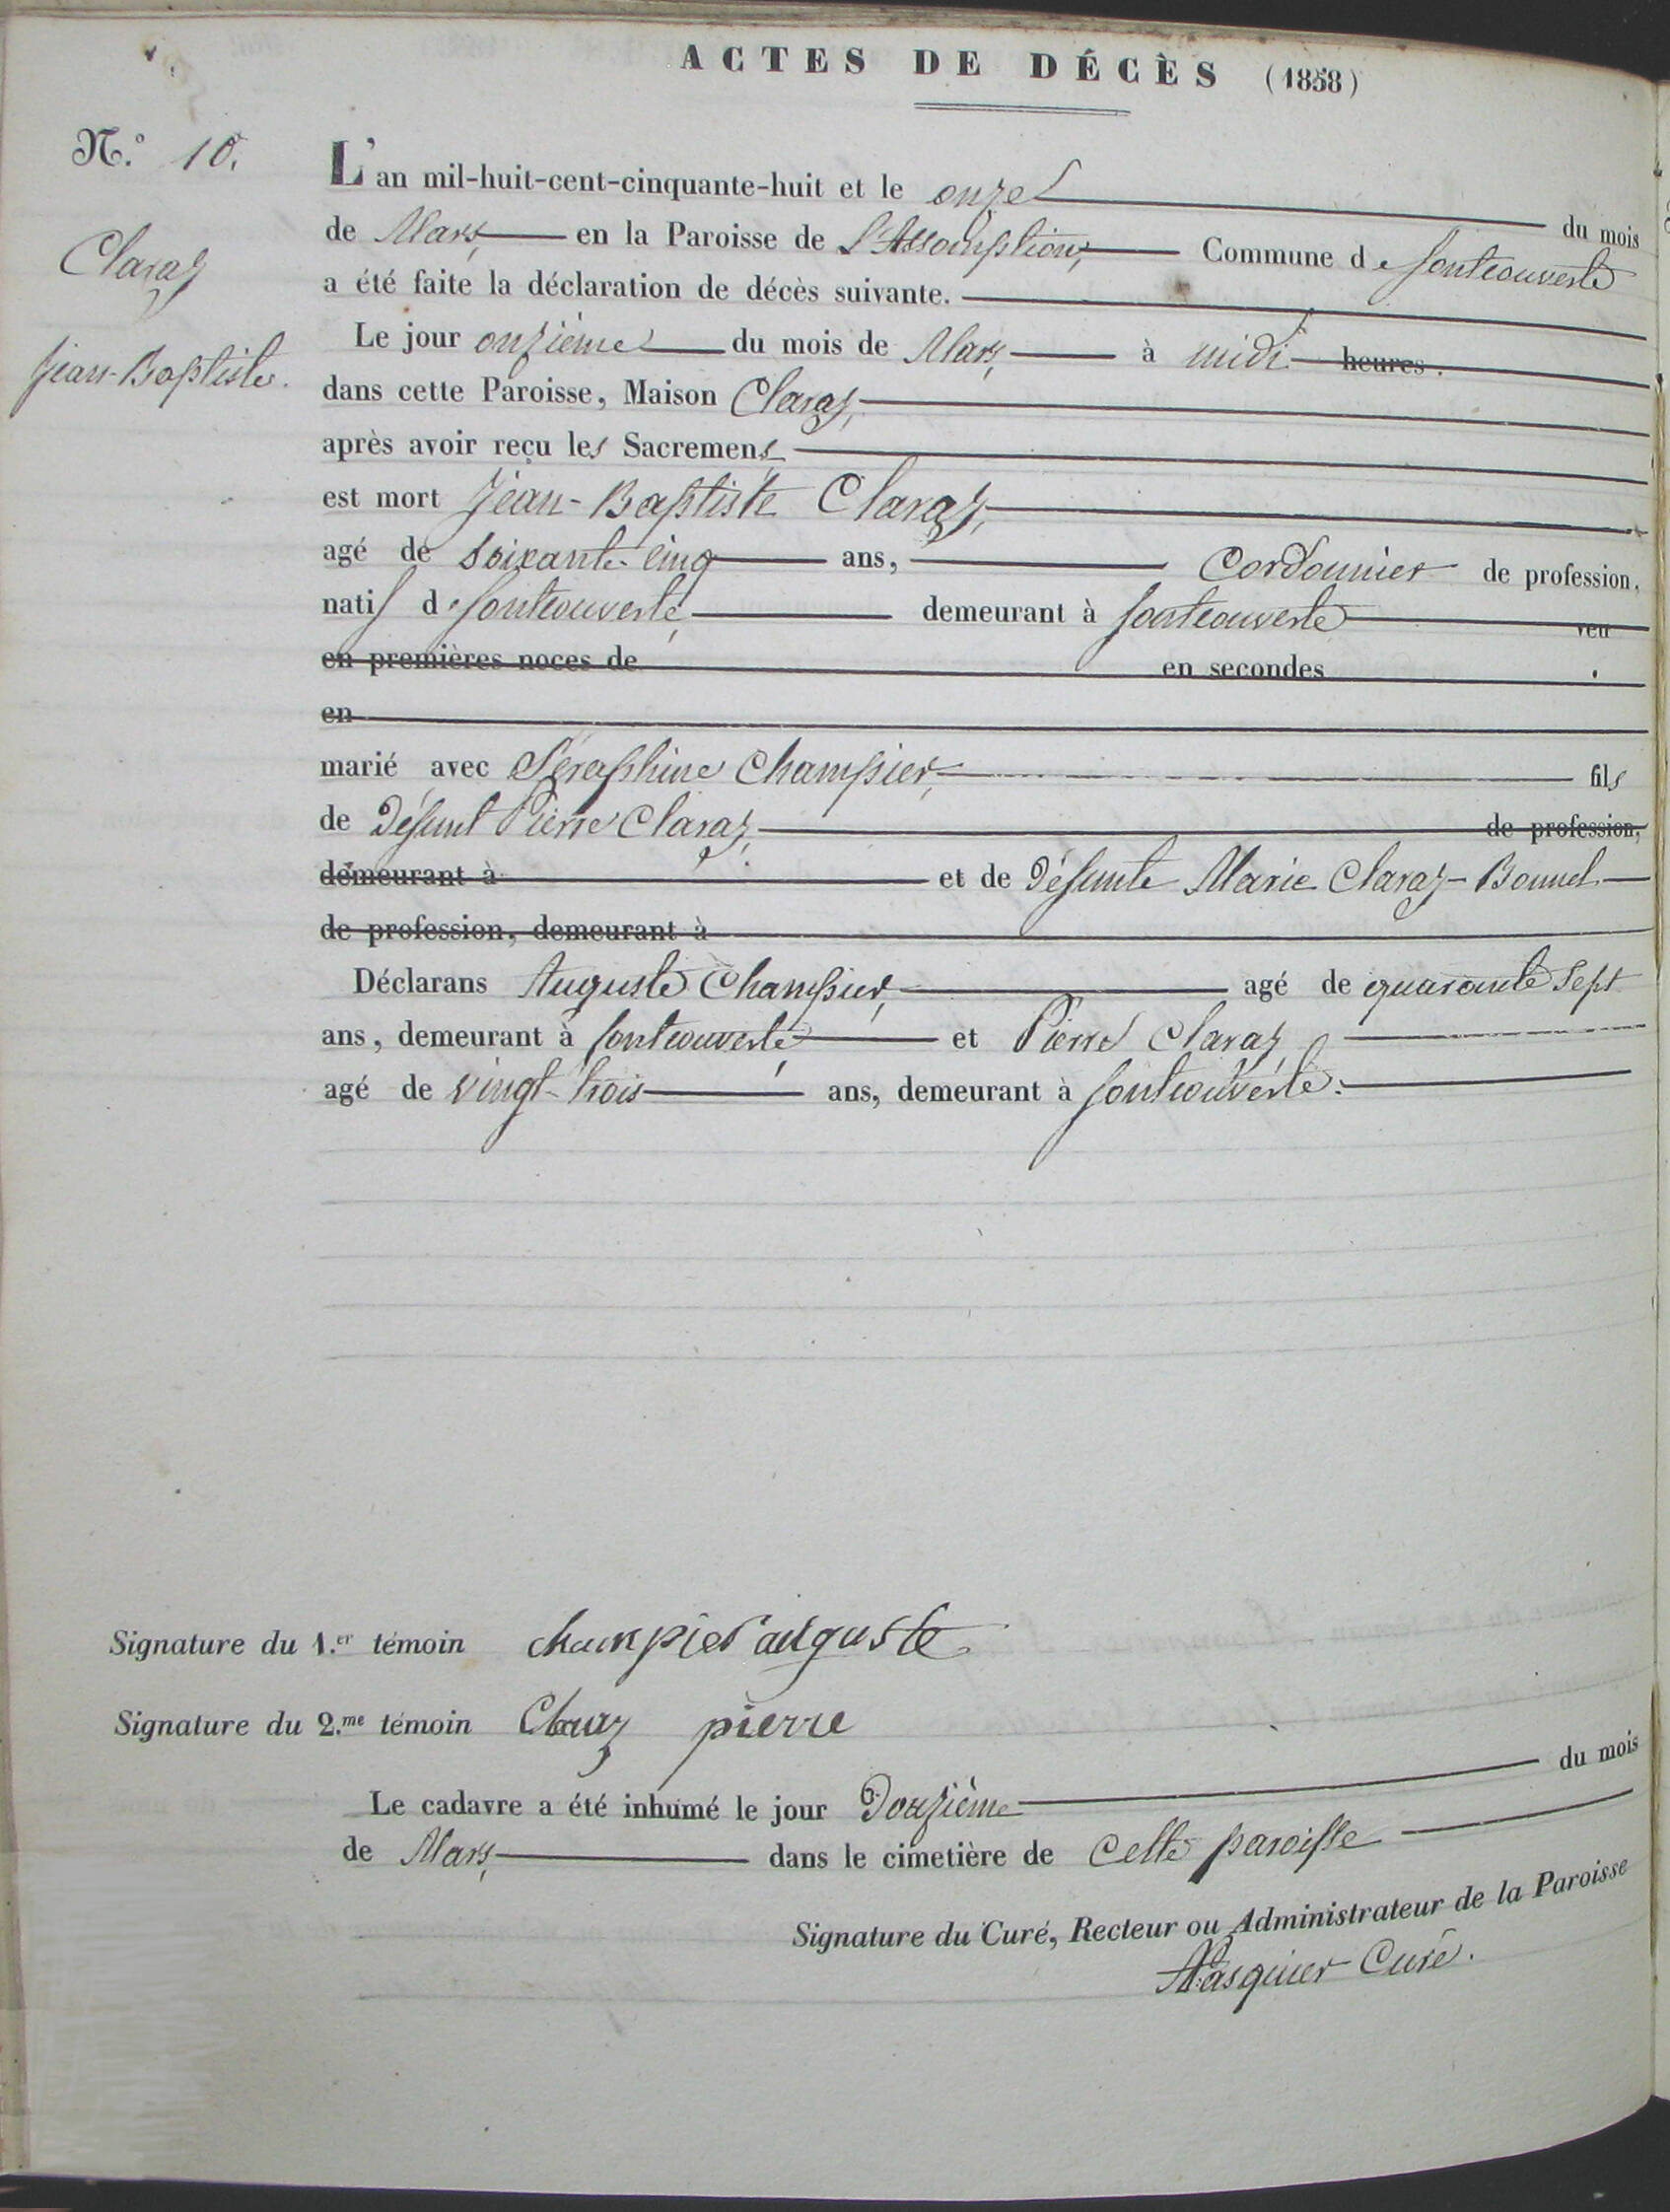 ACTES DE DÉCÈS (1858)
N.º 10.
Claraz
Jean-Baptiste.
L'an mil-huit-cent-cinquante-huit et le onze du mois
de Mars, en la Paroisse de L'Assomption, Commune de fontcouverte
a été faite la déclaration de décès suivante.
Le jour onzième du mois de Mars, à midi heures.
dans cette Paroisse, Maison Claraz,
après avoir reçu les Sacremens
est mort Jean-Baptiste Claraz,
agé de soixante-cinq ans, Cordonnier de profession.
natif de fontcouverte, demeurant à fontcouverte veu
en premières noces de en secondes
en
marié avec Séraphine Champier, fils
de Défunt Pierre Claraz, de profession,
demeurant à et de Défunte Marie Claraz-Bonnel
de profession, demeurant à
Déclarans Auguste Champier, agé de quarante sept
ans, demeurant à fontcouverte, et Pierre Claraz,
agé de vingt-trois ans, demeurant à fontcouverte.
Signature du 1.er témoin champier auguste
Signature du 2.me témoin Claraz pierre
Le cadavre a été inhumé le jour Douzième du mois
de Mars, dans le cimetière de cette paroisse
Signature du Curé, Recteur ou Administrateur de la Paroisse
Pasquier Curé.